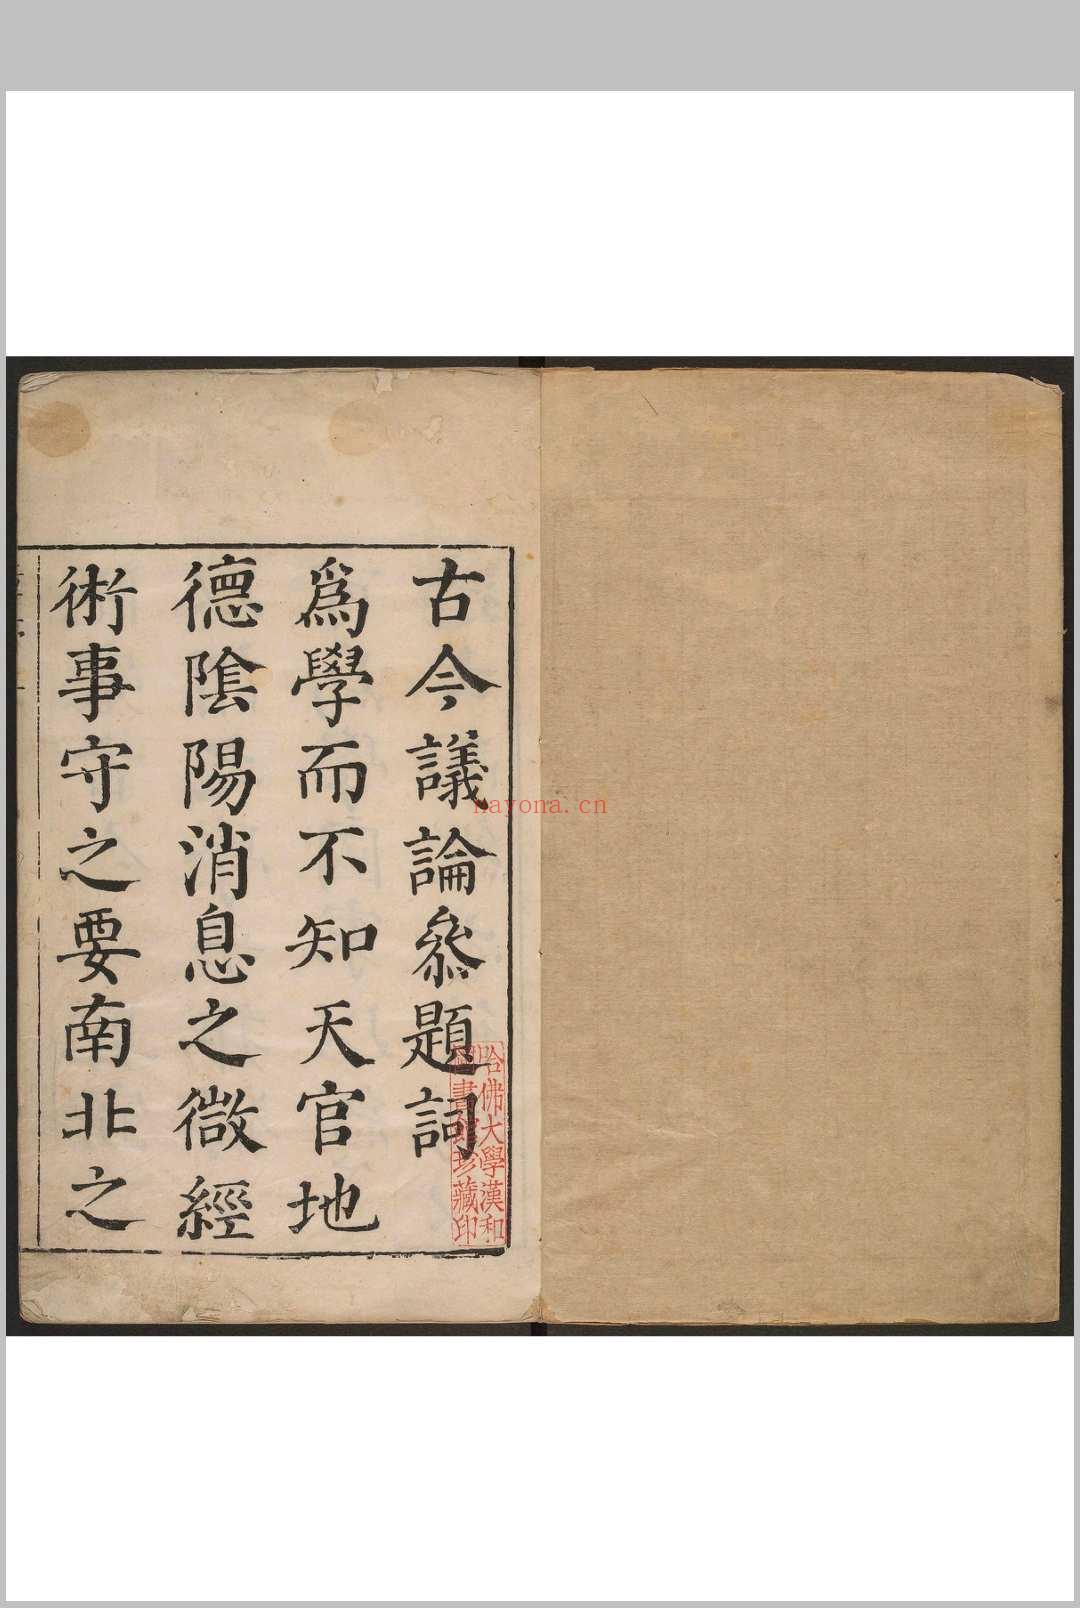 古今議論叅題詞
爲學而不知天官地
德陰陽消息之微經
術事守之要南北之
哈佛大學漢和
圖書館珍藏印
nayona.cn